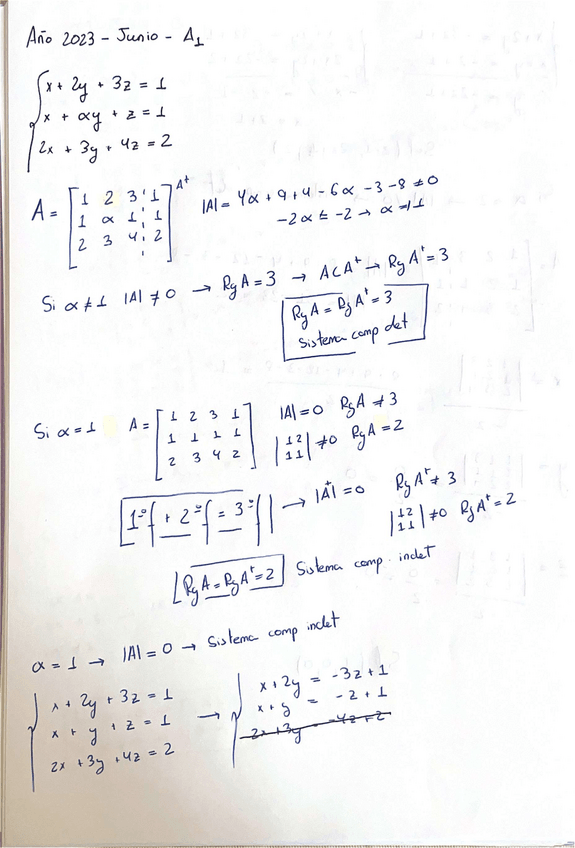 Año 2023 - Junio - A1
x + 2y + 3z = 1
x + αy + z = 1
2x + 3y + 4z = 2
A = [ 1 2 3 ¦ 1 ] A⁺
1 α 1 ¦ 1
2 3 4 ¦ 2
|A| = 4α + 9 + 4 - 6α - 3 - 8 ≠ 0
-2α ≠ -2 → α ≠ 1
Si α ≠ 1 |A| ≠ 0 → Rg A = 3 → A ⊂ A⁺ → Rg A⁺ = 3
Rg A = Rg A⁺ = 3
Sistema comp det
Si α = 1 A = [ 1 2 3 1 ]
1 1 1 1
2 3 4 2
|A| = 0 Rg A ≠ 3
|1 2|
|1 1| ≠ 0 Rg A = 2
1ªf + 2ªf = 3ªf → |A⁺| = 0 Rg A⁺ ≠ 3
|1 2|
|1 1| ≠ 0 Rg A⁺ = 2
Rg A = Rg A⁺ = 2 Sistema comp. indet
α = 1 → |A| = 0 → Sistema comp indet
x + 2y + 3z = 1
x + y + z = 1
2x + 3y + 4z = 2
→ x + 2y = -3z + 1
x + y = -z + 1
2x + 3y = -4z + 2